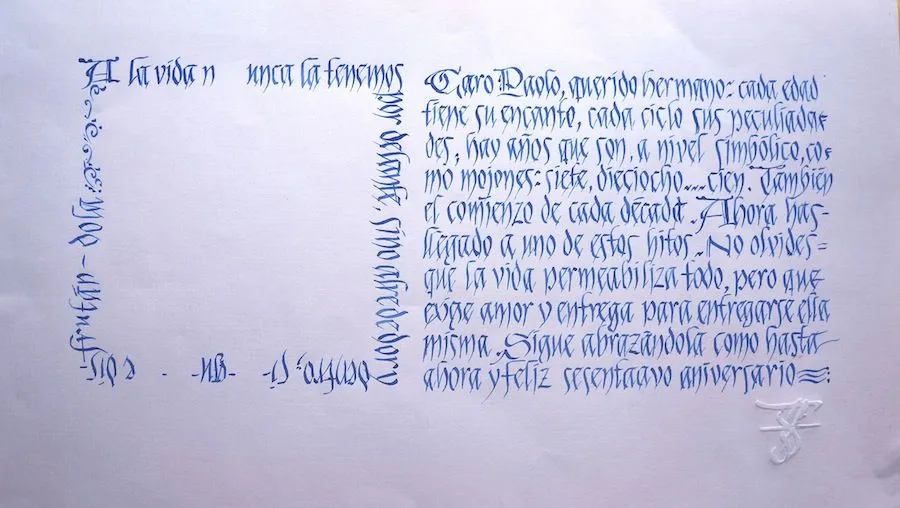 A la vida n unca la tenemos
por delante, sino alrededor y
dentro; Si- -gu- - e dis-
frután-dola.
Caro Paolo, querido hermano: cada edad
tiene su encanto, cada ciclo sus peculiarida=
des; hay años que son, a nivel simbólico, co=
mo mojones: siete, dieciocho....cien. También
el comienzo de cada década. Ahora has-
llegado a uno de estos hitos. No olvides=
que la vida permeabiliza todo, pero que
exige amor y entrega para entregarse ella
misma. Sigue abrazándola como hasta
ahora y feliz sesentaavo aniversario